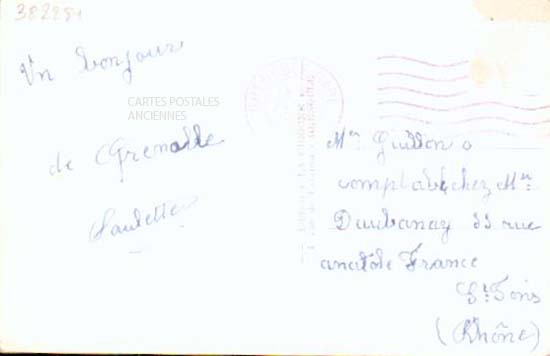 382281
Un Bonjour
de Grenoble
Paulette
CARTES POSTALES
ANCIENNES
Mr Guillon
comptable chez Mr
Daubanay 33 rue
anatole France
St Fons
(Rhône)